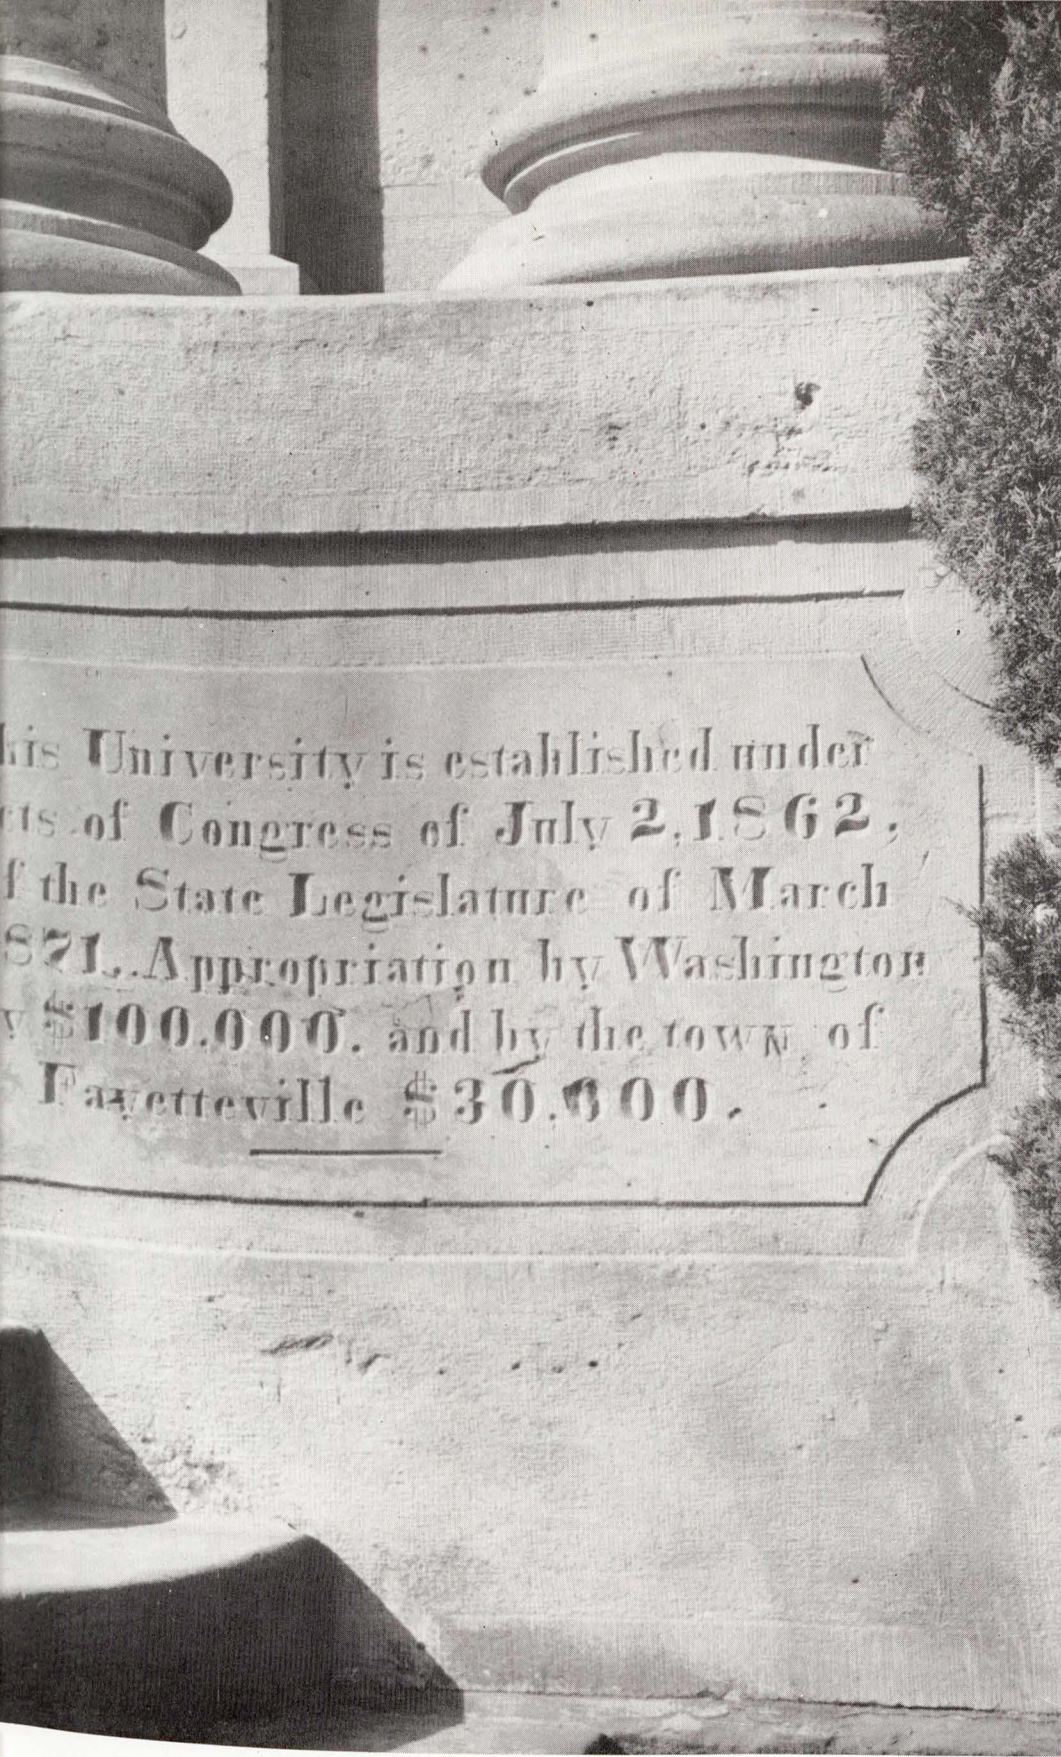 his University is established under
cts of Congress of July 2, 1862,
f the State Legislature of March
871,. Appropriation by Washington
y $100.000. and by the town of
Fayetteville $30.000.